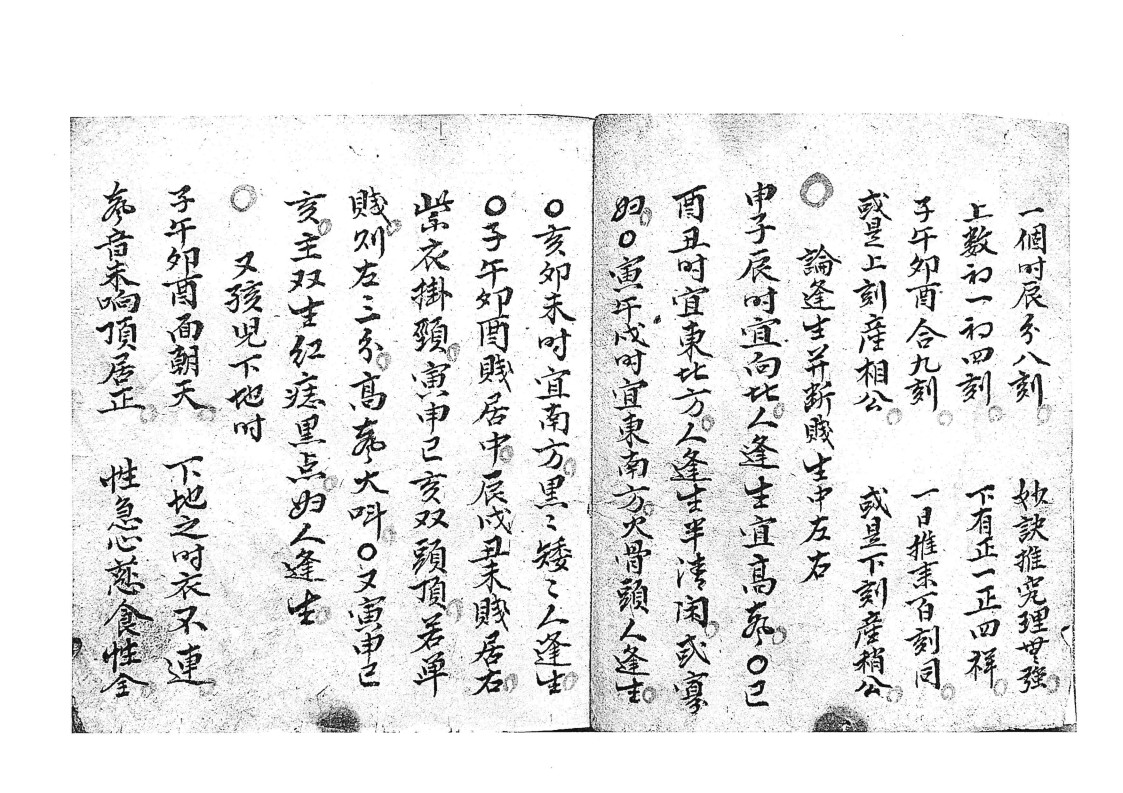 一個时辰分八刻 妙訣推究理無強
上数初一初四刻 下有正一正四祥
子午卯酉合九刻 一日推来百刻同
或是上刻産相公 或是下刻産稍公
論逢生并断賎生中左右
申子辰时宜向北人逢生宜高 〇巳
酉丑时宜東北方人逢生半清闲或寡
妇〇寅午戌时宜東南方火骨頭人逢生
〇亥卯未时宜南方黒〻矮〻人逢生
〇子午卯酉賎居中辰戌丑未賎居右
紫衣掛頸寅申巳亥双頭頂若单
賎则左三分高 大呌〇又寅申巳
亥主双生红痣黒点妇人逢生
又孩児下地时
子午卯酉面朝天 下地之时衣不連
音未响頂居正 性急心慈食性全